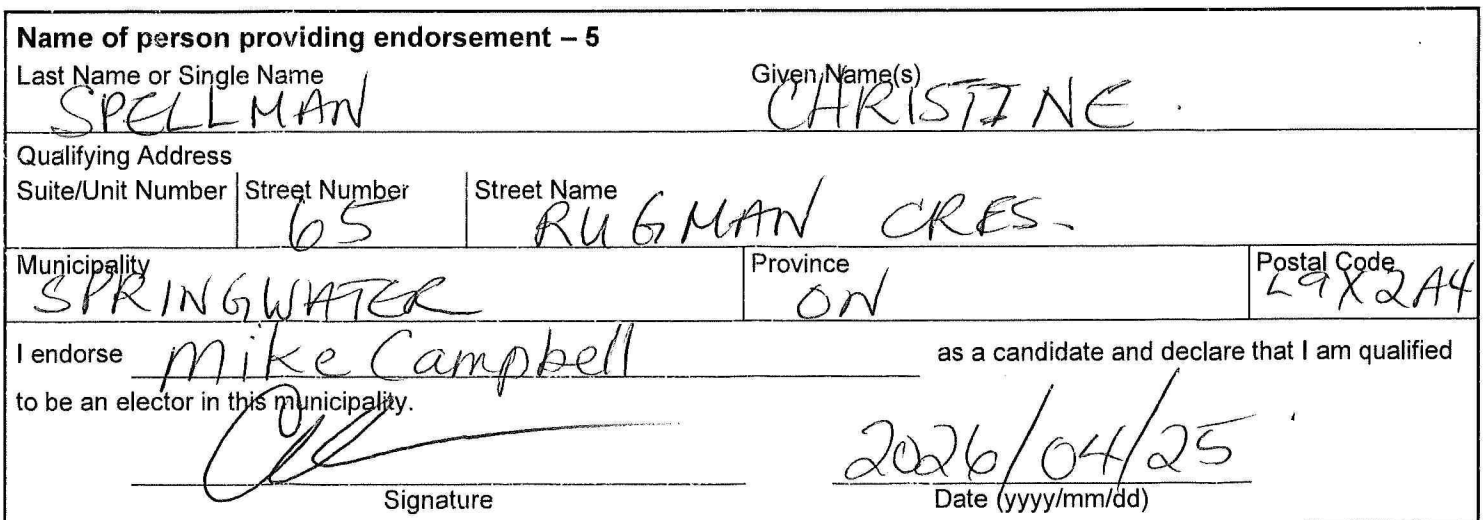 Name of person providing endorsement – 5
Last Name or Single Name Given Name(s)
SPELLMAN CHRISTINE
Qualifying Address
Suite/Unit Number Street Number Street Name
65 RUGMAN CRES.
Municipality Province Postal Code
SPRINGWATER ON L9X2A4
I endorse Mike Campbell as a candidate and declare that I am qualified
to be an elector in this municipality.
2026/04/25
Signature Date (yyyy/mm/dd)